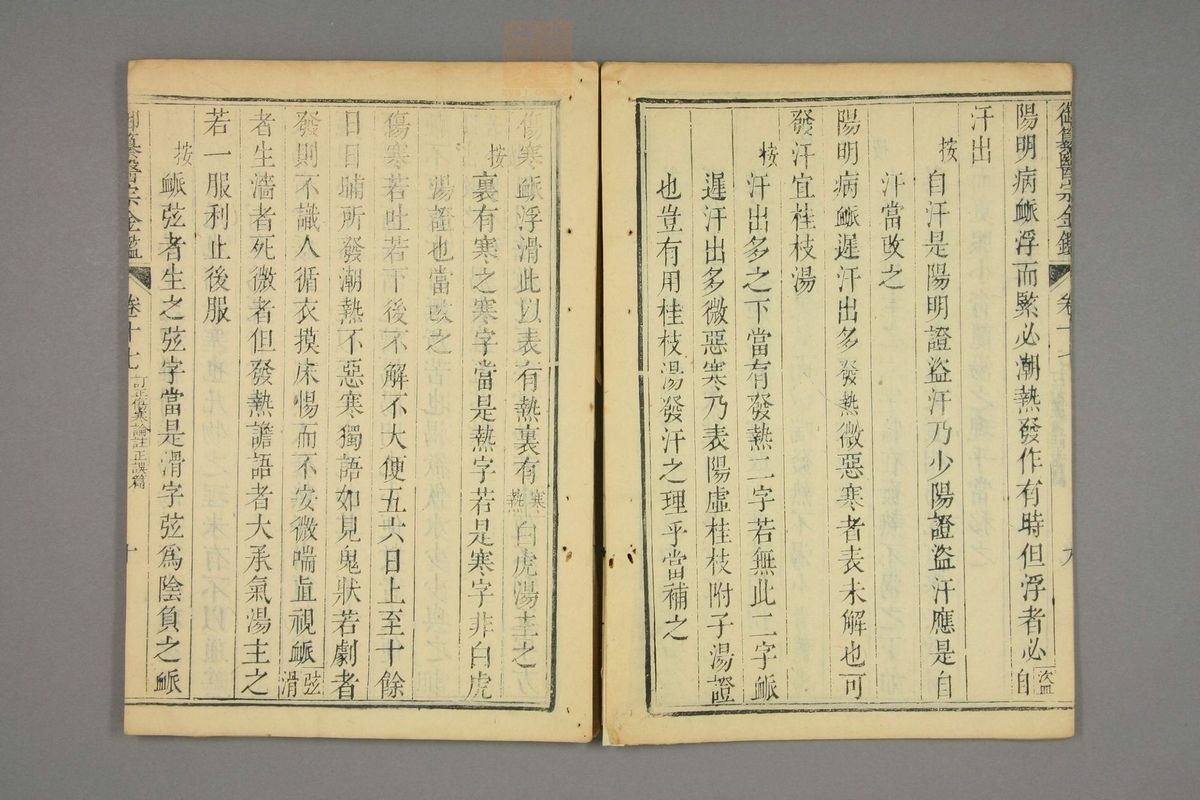 御纂醫宗金鑑 卷十七 九
陽明病脈浮而緊必潮熱發作有時但浮者必盜自
汗出
按自汗是陽明證盜汗乃少陽證盜汗應是自
汗當改之
陽明病脈遲汗出多發熱微惡寒者表未解也可
發汗宜桂枝湯
按汗出多之下當有發熱二字若無此二字脈
遲汗出多微惡寒乃表陽虛桂枝附子湯證
也豈有用桂枝湯發汗之理乎當補之
傷寒脈浮滑此以表有熱裏有寒熱白虎湯主之
按裏有寒之寒字當是熱字若是寒字非白虎
湯證也當改之
傷寒若吐若下後不解不大便五六日上至十餘
日日晡所發潮熱不惡寒獨語如見鬼狀若劇者
發則不識人循衣摸床惕而不安微喘直視脈弦滑
者生濇者死微者但發熱譫語者大承氣湯主之
若一服利止後服
按脈弦者生之弦字當是滑字弦爲陰負之脈
御纂醫宗金鑑 卷十七 訂正傷寒論註正誤篇 十